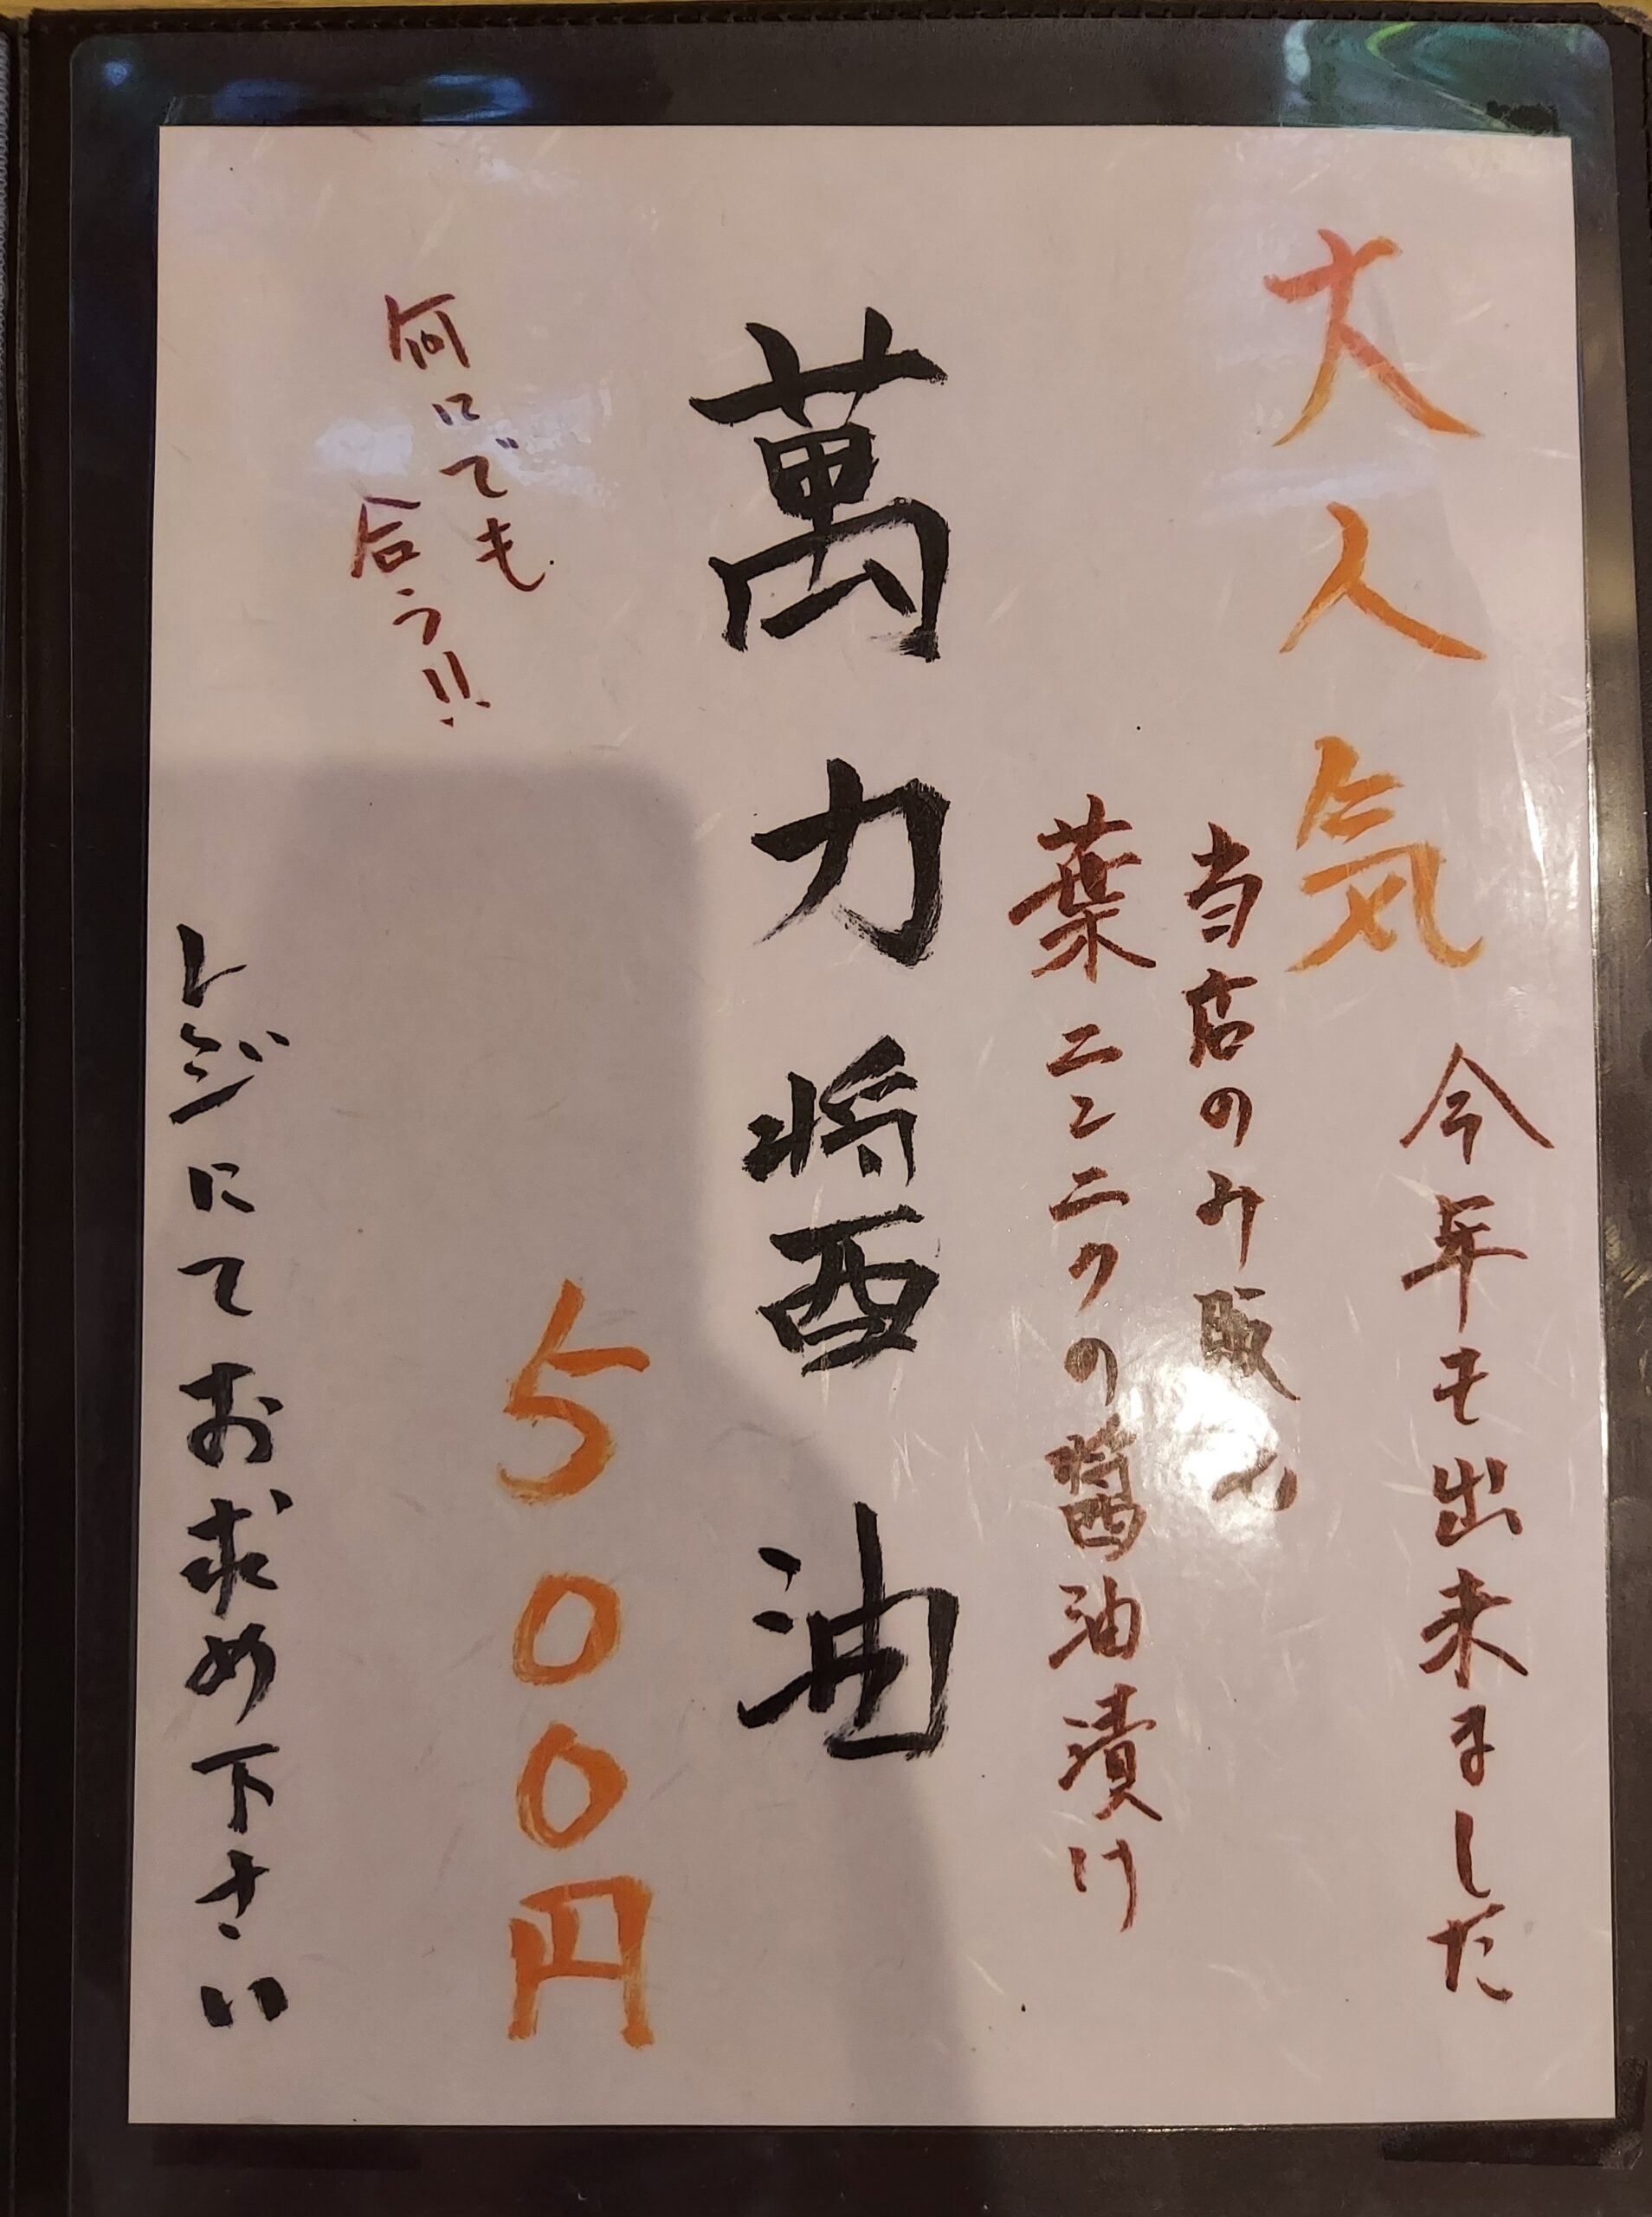 大人気
今年も出来ました
当店のみ販売
葉ニンニクの醤油漬け
萬力醤油
何にでも
合う!!
500円
レジにてお求め下さい